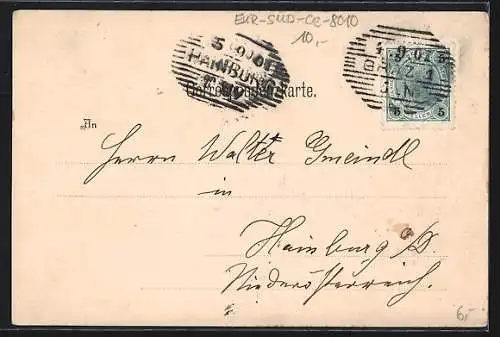 EUR-SUD-CE-8010
10,-
HAINBURG
5 5
5 5
Correspondenzkarte.
An
Herrn Walter Gmeindl
in
Hainburg a/D.
Niederösterreich.
6,-